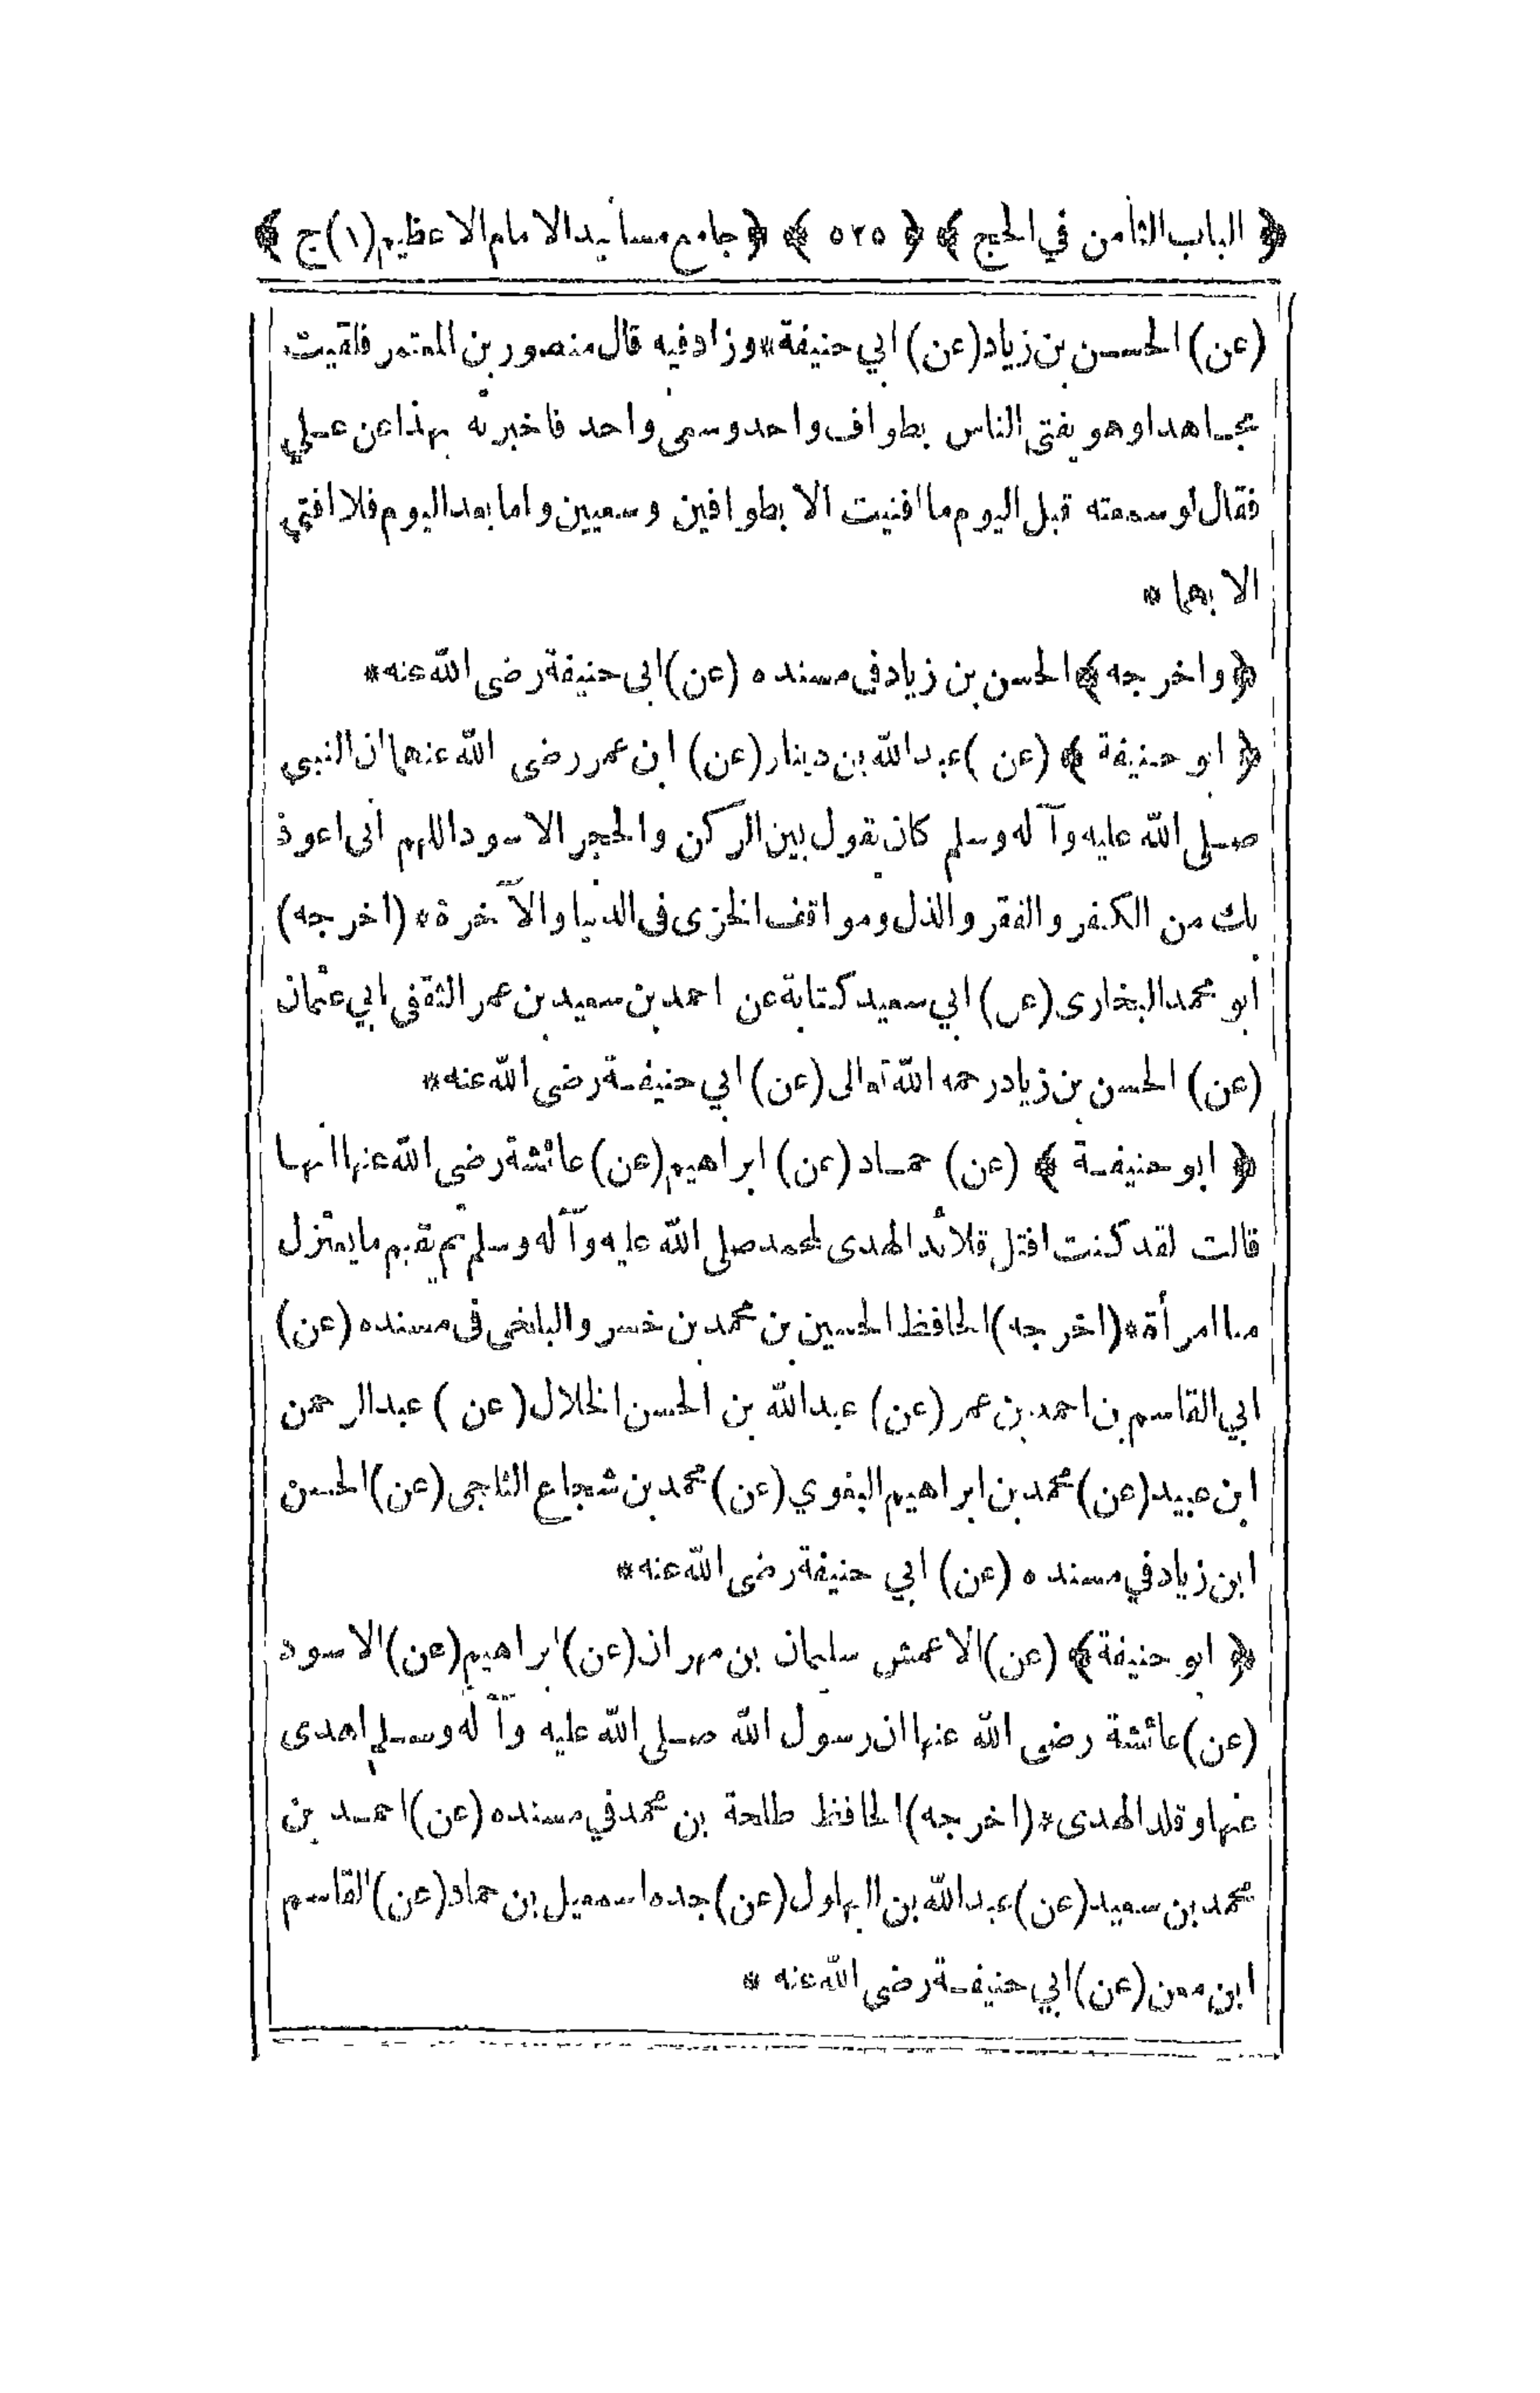 ﴿ الباب الثامن في الحج ﴾ ﴿ ٥٢٥ ﴾ ﴿ جامع مسانيد الامام الاعظم (١) ج ﴾
(عن) الحسن بن زياد (عن) ابي حنيفة * وزاد فيه قال منصور بن المعتمر فلقيت
مجاهدا وهو يفتى الناس بطواف واحد وسعى واحد فاخبرته بهذا عن علي
فقال لو سمعته قبل اليوم ما افتيت الا بطوافين وسعيين واما بعد اليوم فلا افتي
الا بهما *
﴿ واخرجه ﴾ الحسن بن زياد في مسنده (عن) ابى حنيفة رضى الله عنه *
﴿ ابو حنيفة ﴾ (عن) عبد الله بن دينار (عن) ابن عمر رضى الله عنهما ان النبي
صلى الله عليه وآله وسلم كان يقول بين الركن والحجر الاسود اللهم انى اعوذ
بك من الكفر والفقر والذل ومواقف الخزى فى الدنيا والآخرة * (اخرجه)
ابو محمد البخارى (عن) ابي سعيد كتابة عن احمد بن سعيد بن عمر الثقفى ابي عثمان
(عن) الحسن بن زياد رحمه الله تعالى (عن) ابي حنيفة رضى الله عنه *
﴿ ابو حنيفة ﴾ (عن) حماد (عن) ابراهيم (عن) عائشة رضى الله عنها انها
قالت لقد كنت افتل قلائد الهدى لمحمد صلى الله عليه وآله وسلم ثم يقيم ما يعتزل
منا امرأة * (اخرجه) الحافظ الحسين بن محمد بن خسرو البلخى فى مسنده (عن)
ابي القاسم بن احمد بن عمر (عن) عبد الله بن الحسن الخلال (عن) عبد الرحمن
ابن عبيد (عن) محمد بن ابراهيم البغوي (عن) محمد بن شجاع الثلجى (عن) الحسن
ابن زياد في مسنده (عن) ابي حنيفة رضى الله عنه *
﴿ ابو حنيفة ﴾ (عن) الاعمش سليمان بن مهران (عن) ابراهيم (عن) الاسود
(عن) عائشة رضى الله عنها ان رسول الله صلى الله عليه وآله وسلم اهدى
غنما وقلد الهدى * (اخرجه) الحافظ طلحة بن محمد في مسنده (عن) احمد بن
محمد بن سعيد (عن) عبد الله بن البهلول (عن) جده اسمعيل بن حماد (عن) القاسم
ابن معن (عن) ابي حنيفة رضى الله عنه *